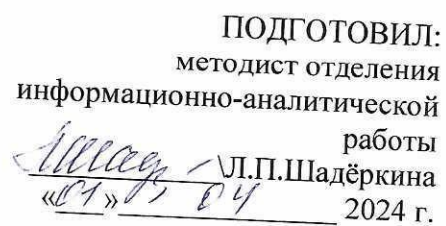 ПОДГОТОВИЛ:
методист отделения
информационно-аналитической
работы
\Л.П.Шадёркина
«01» 04 2024 г.